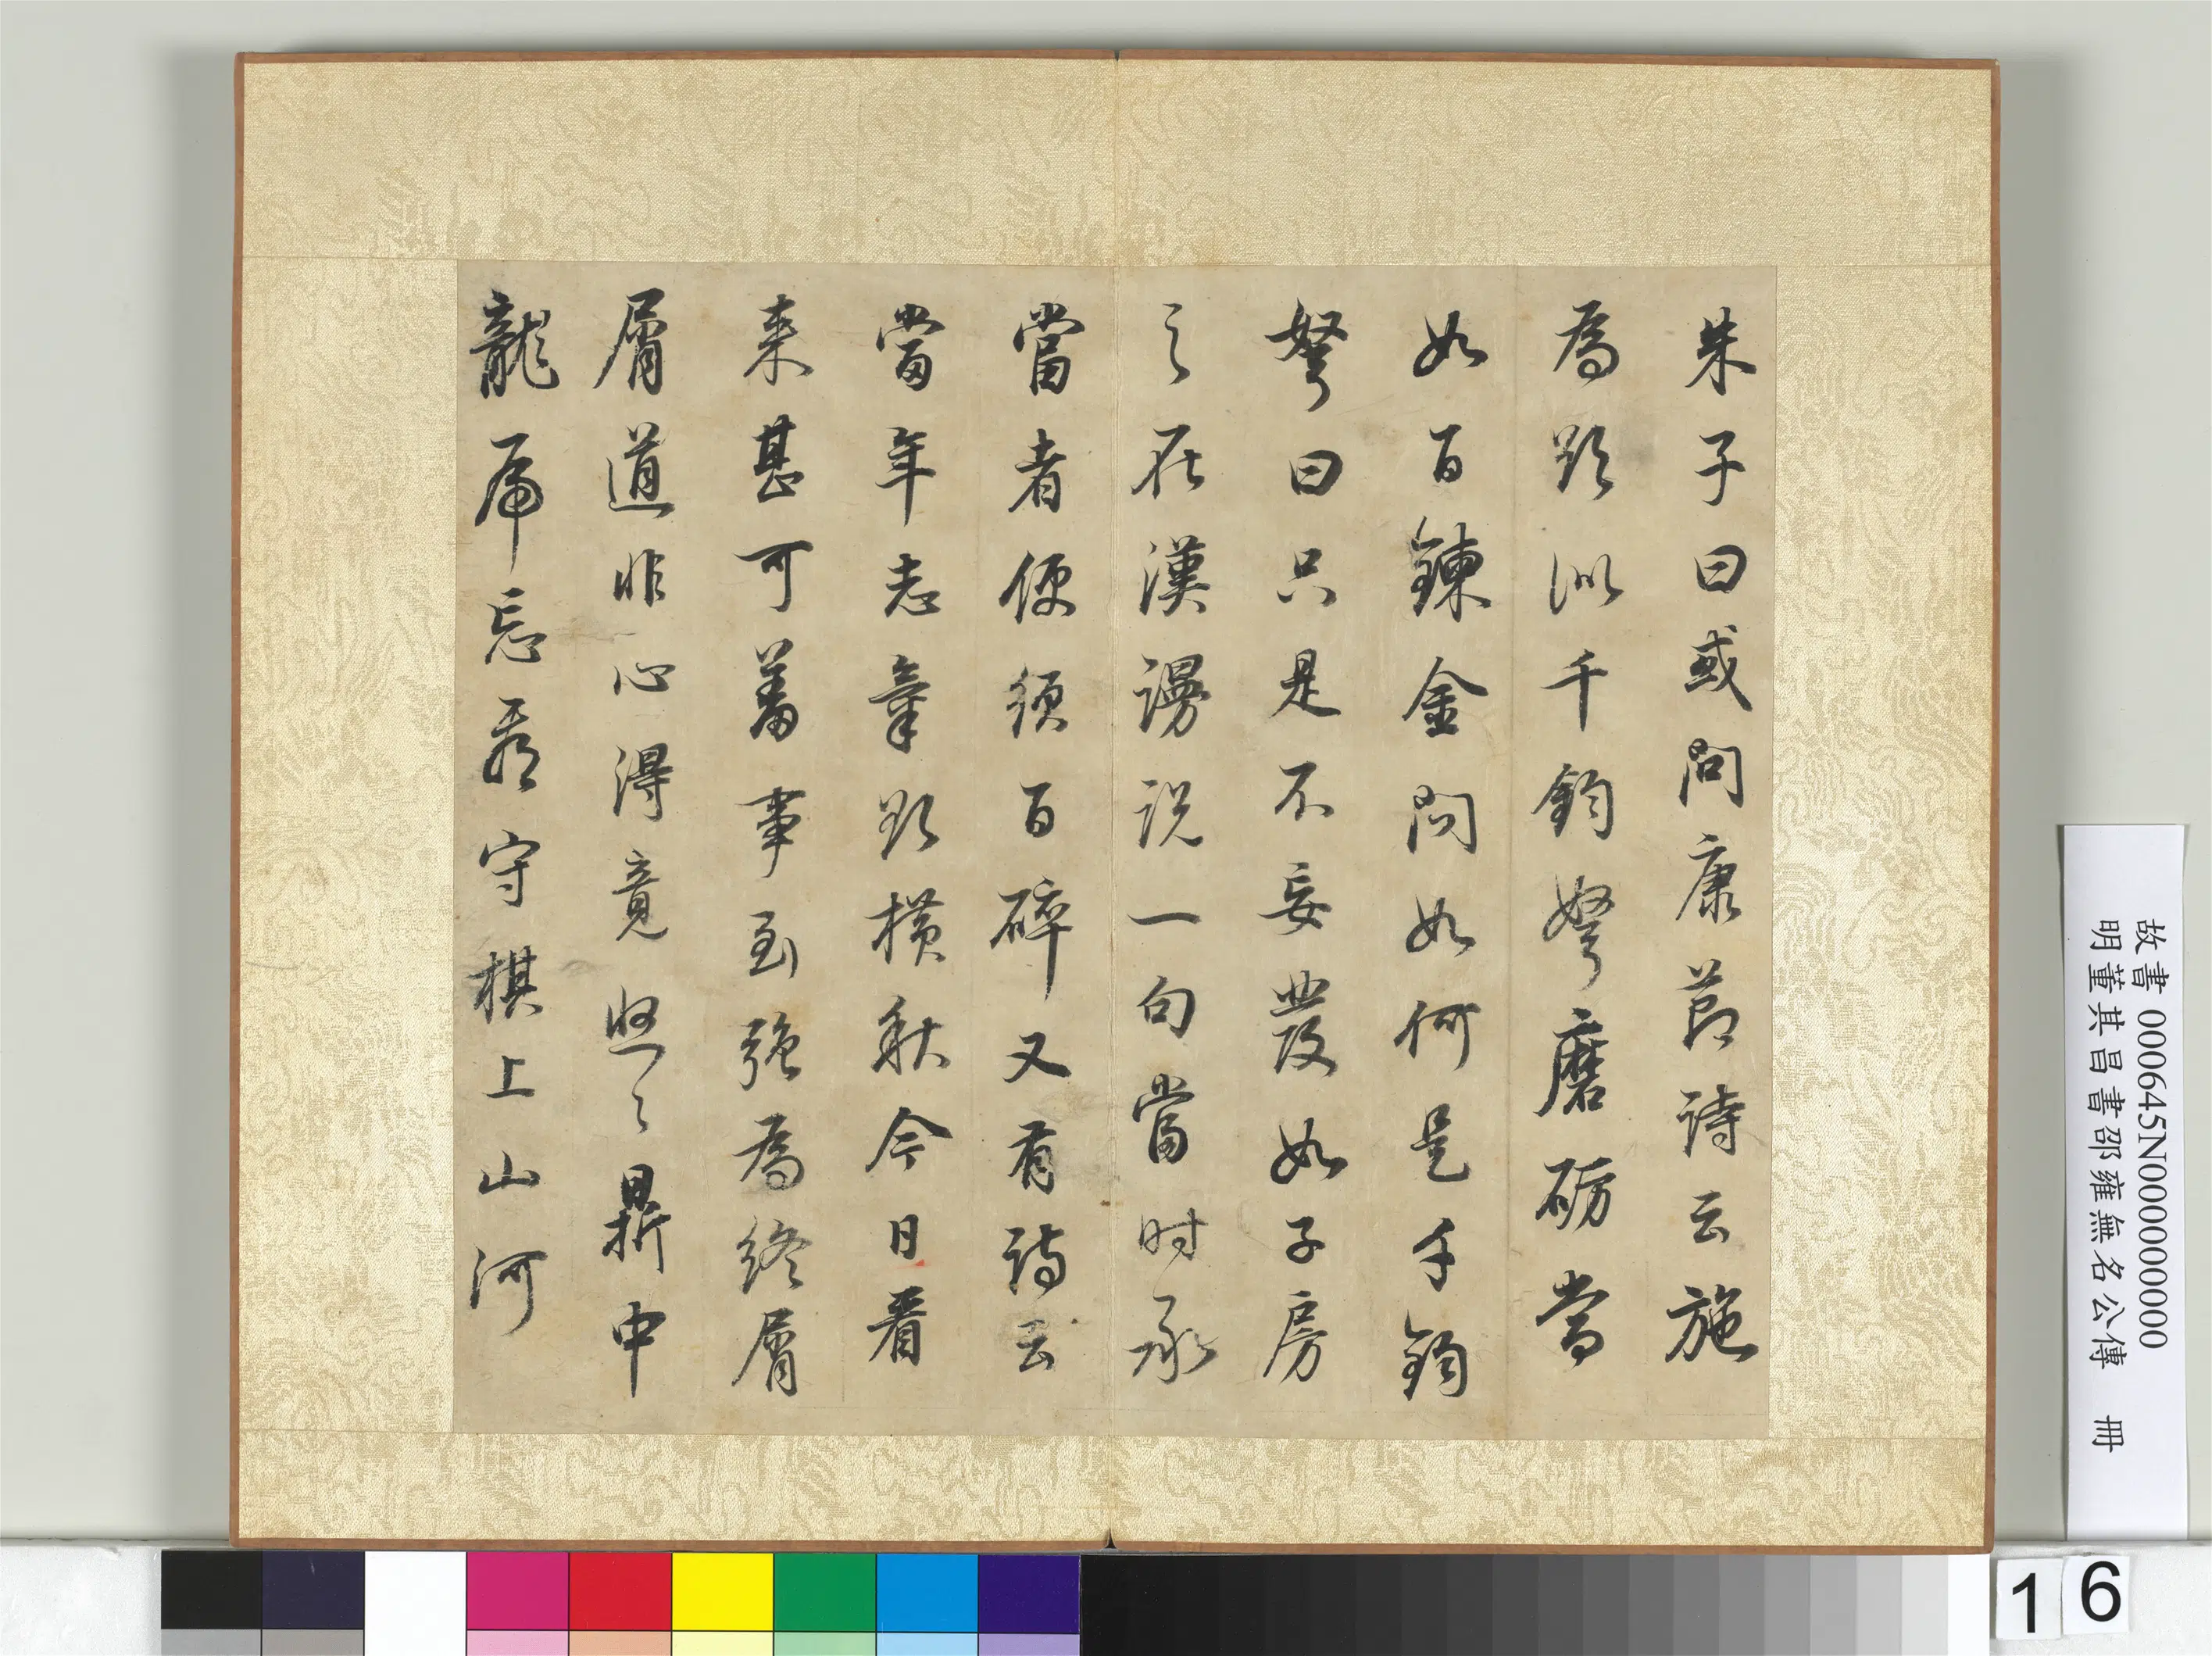 朱子曰或問康節詩云施
為欲似千鈞弩磨礪當
如百鍊金問如何是千鈞
弩曰只是不妄發如子房
之在漢謾説一句當時承
當者便須百碎又有詩云
當年志氣欲橫秋今日看
來甚可羞事到強為終屑
屑道非心得竟悠〻鼎中
龍虎忘看守棋上山河
故書 000645N000000000
明董其昌書邵雍無名公傳 冊
1 6